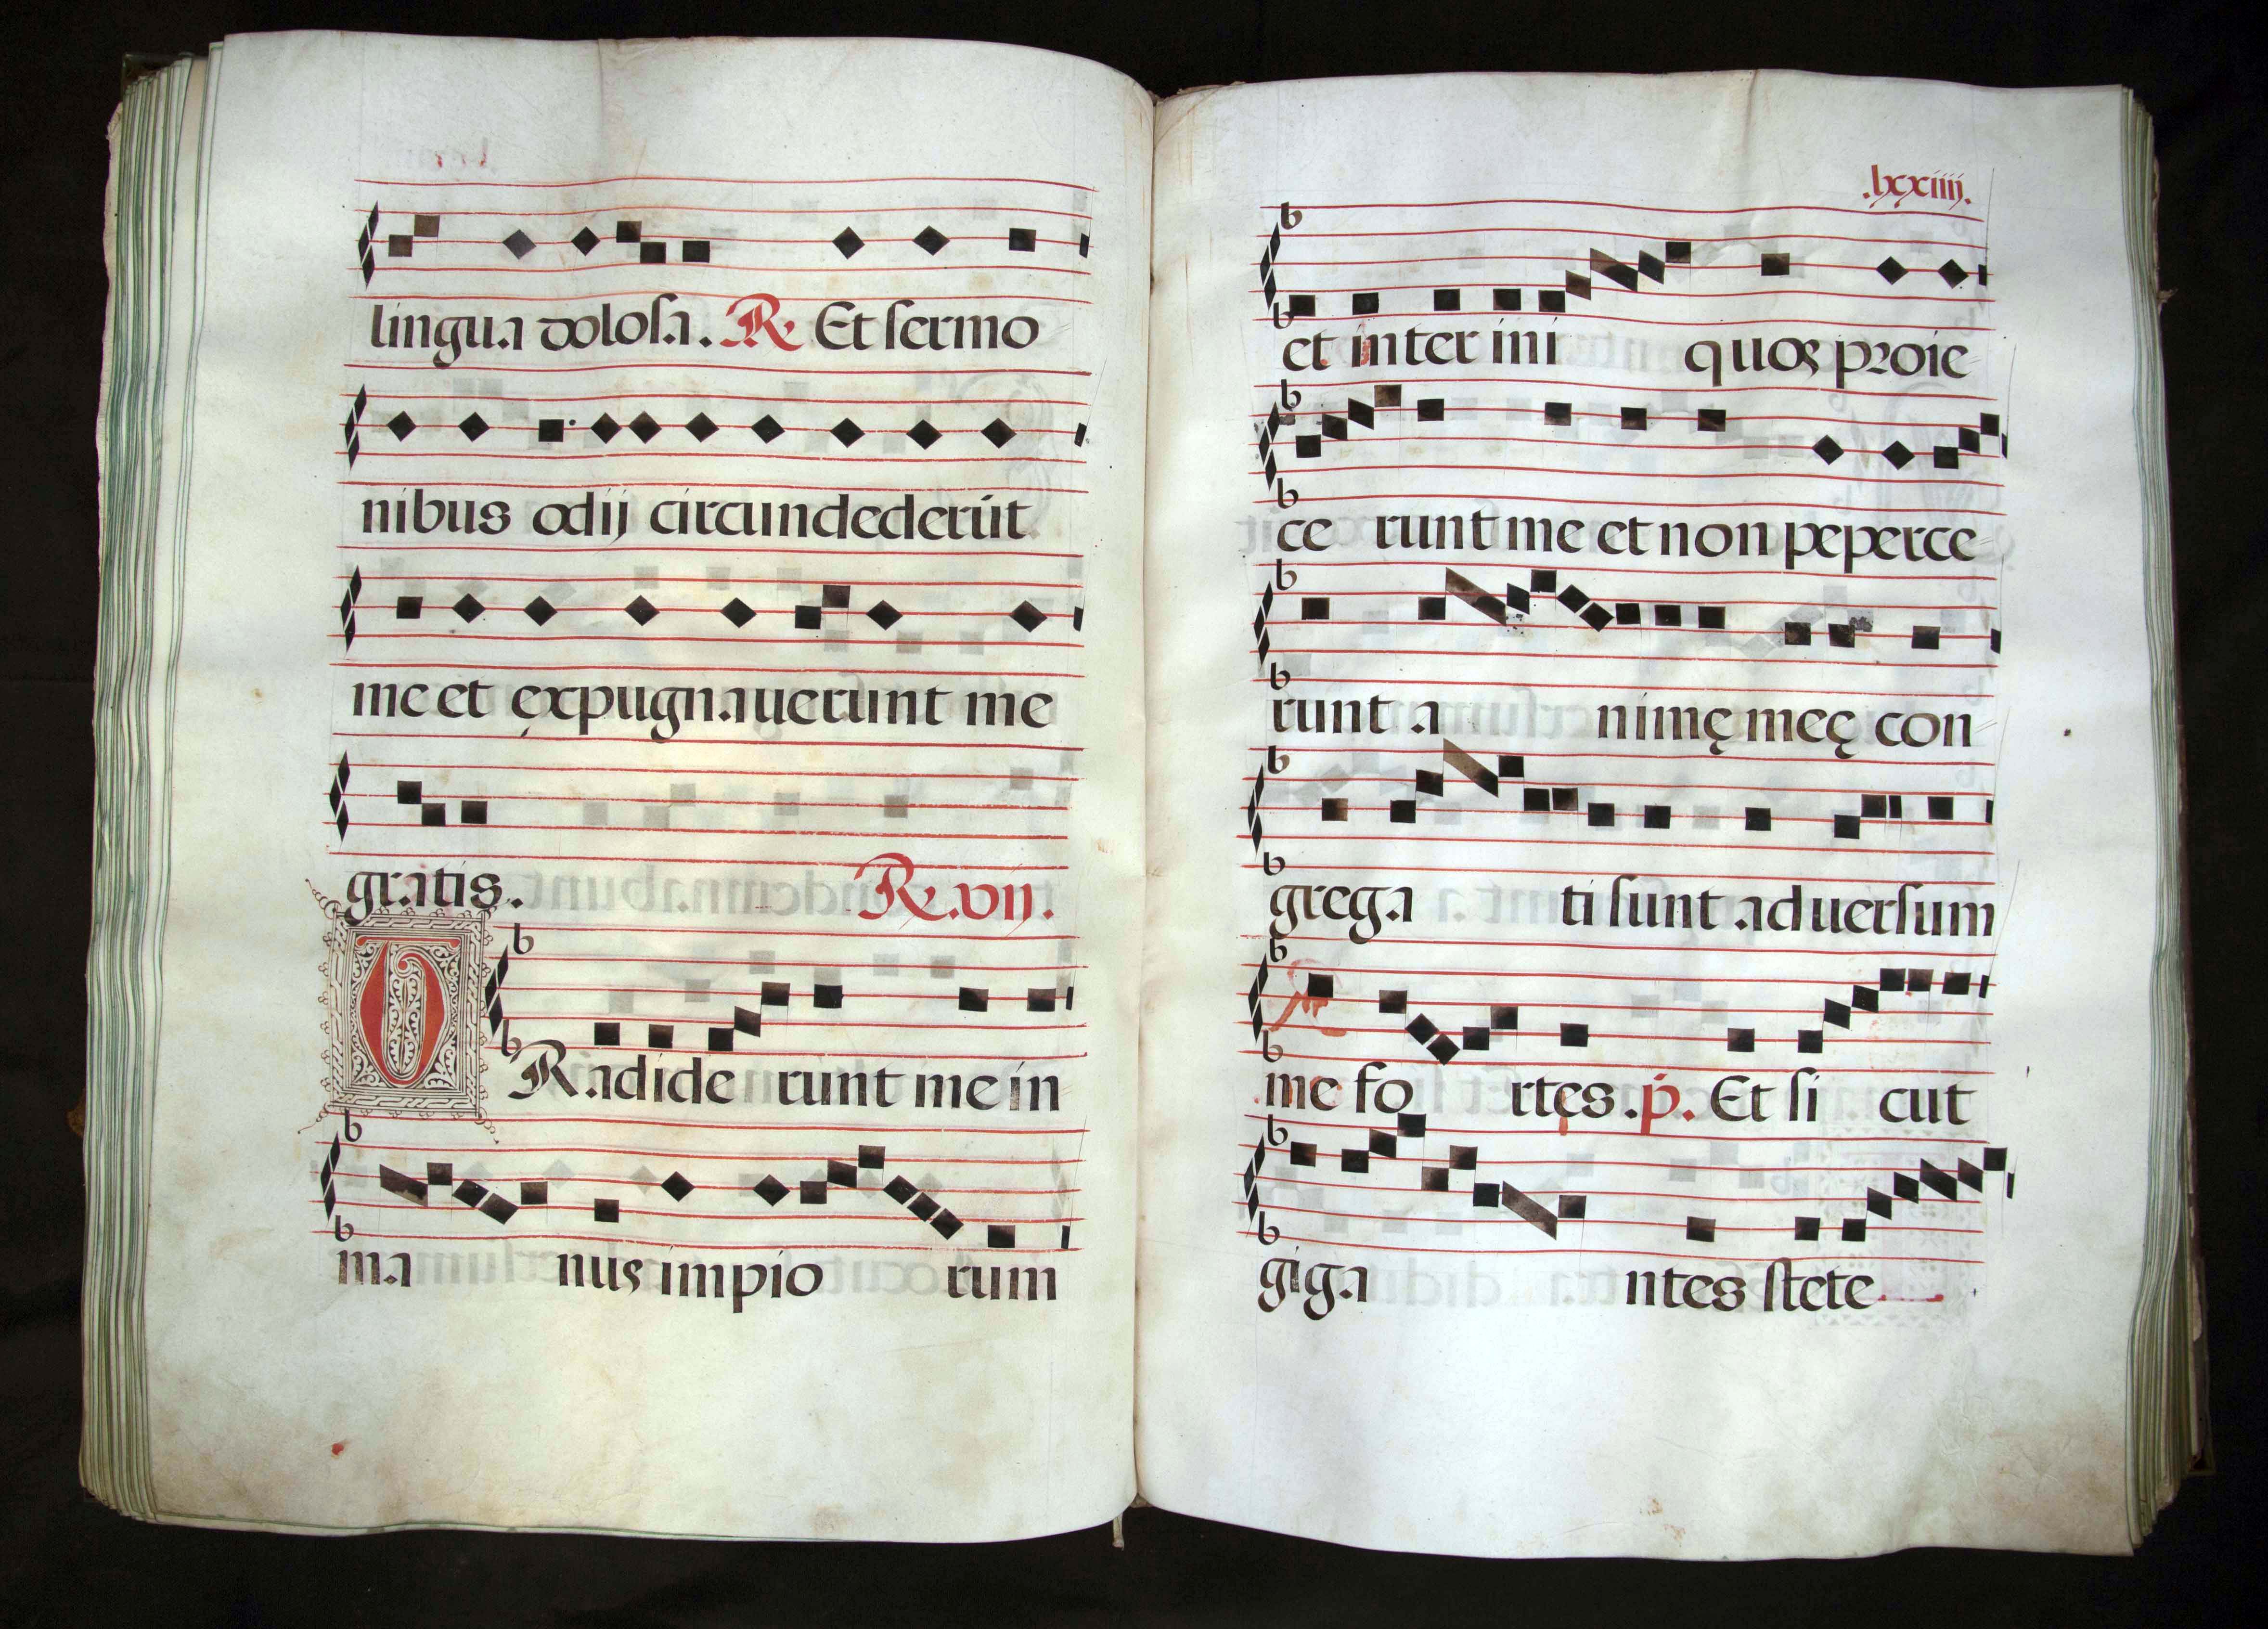 lingua dolosa. R. Et sermo
nibus odij circundederūt
me et ęxpugnauerunt me
gratis. R. vij.
TRadide runt me in
ma nus impio rum
.lxxiiij.
et inter ini quos proie
ce runt me et non peperce
runt a nimę meę con
grega ti sunt aduersum
me fo rtes. p. Et si cut
giga ntes stete